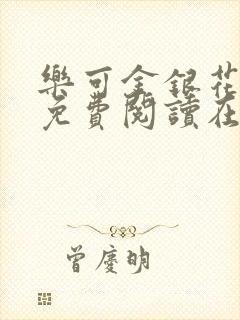 樂可金銀花
免費閱讀在
曾慶明